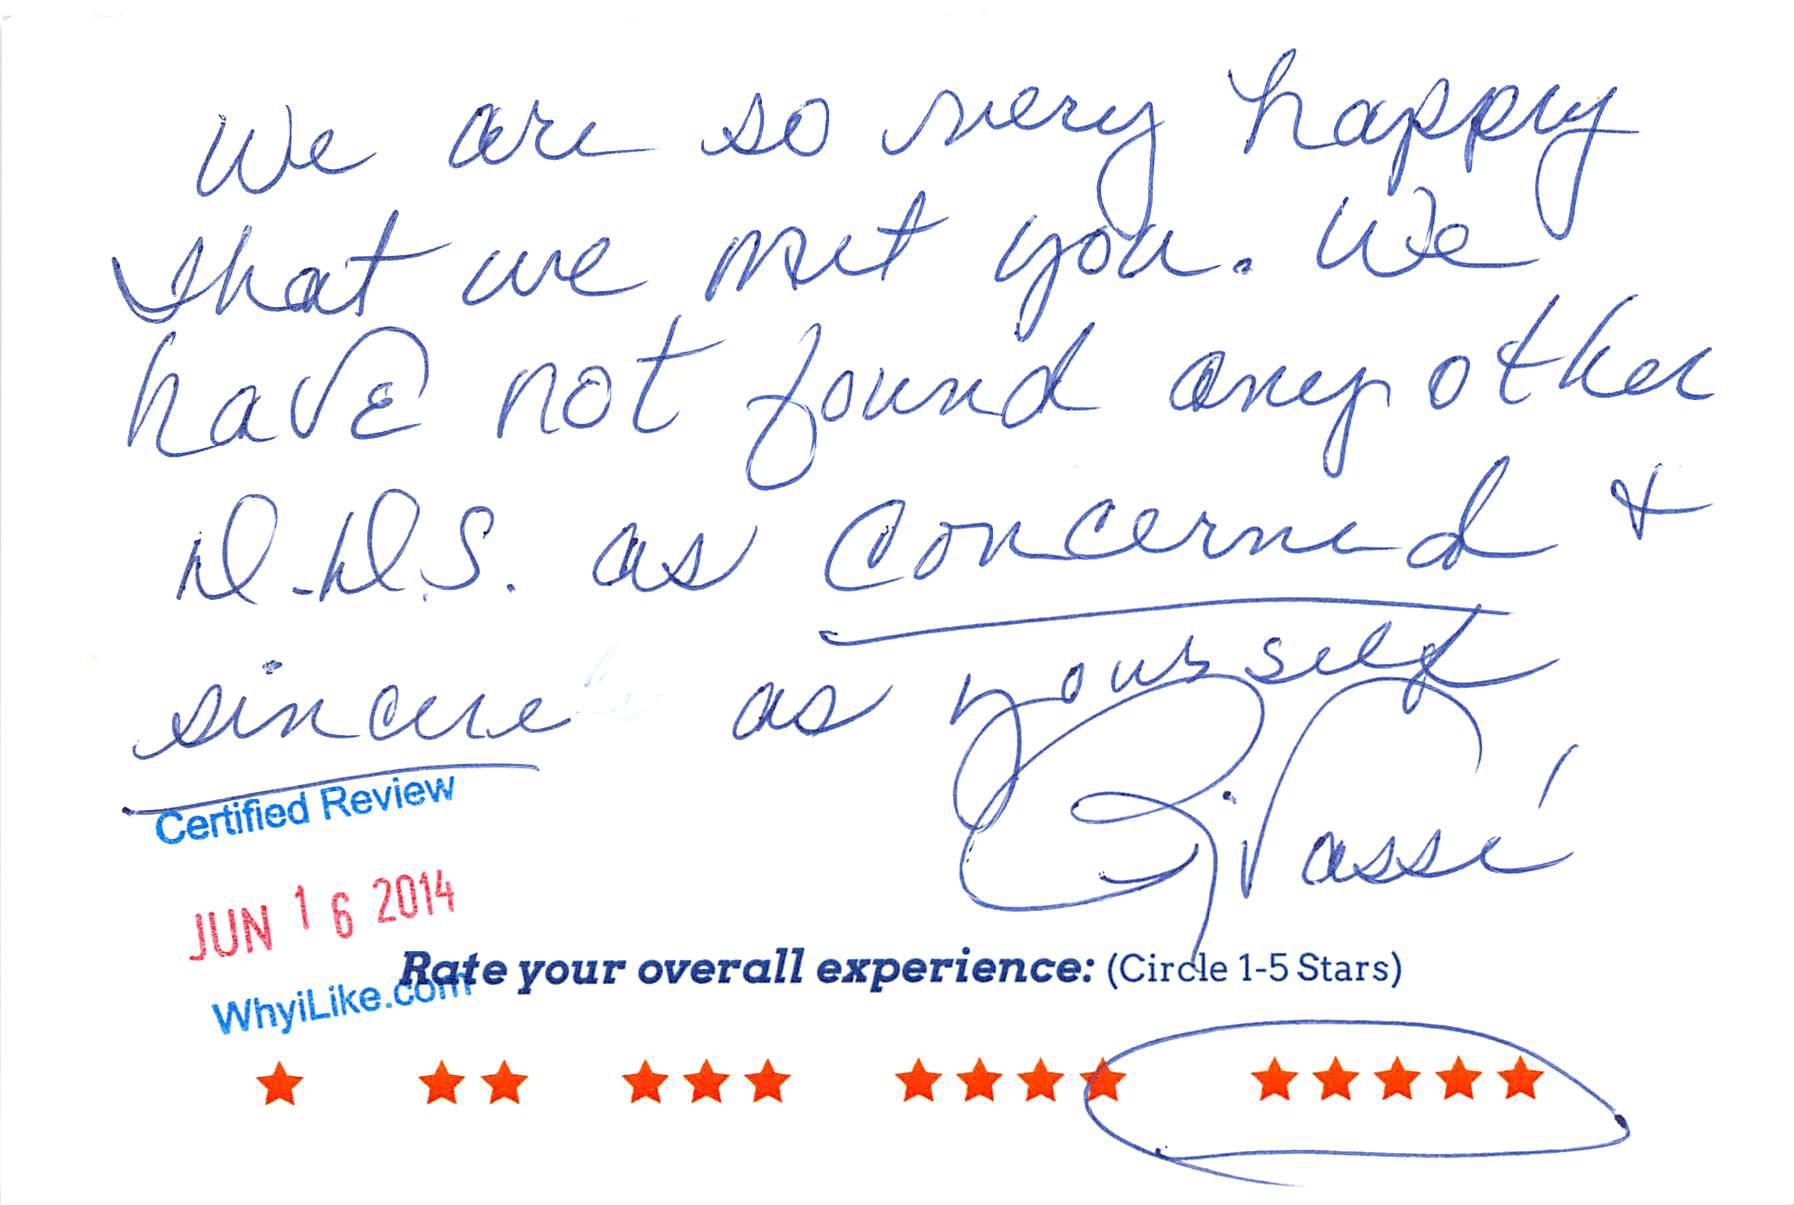 We are so very happy
that we met you. We
have not found any other
D.D.S. as concerned &
sincere as yourself
Vassé
Certified Review
JUN 16 2014
WhyiLike.com
Rate your overall experience: (Circle 1-5 Stars)